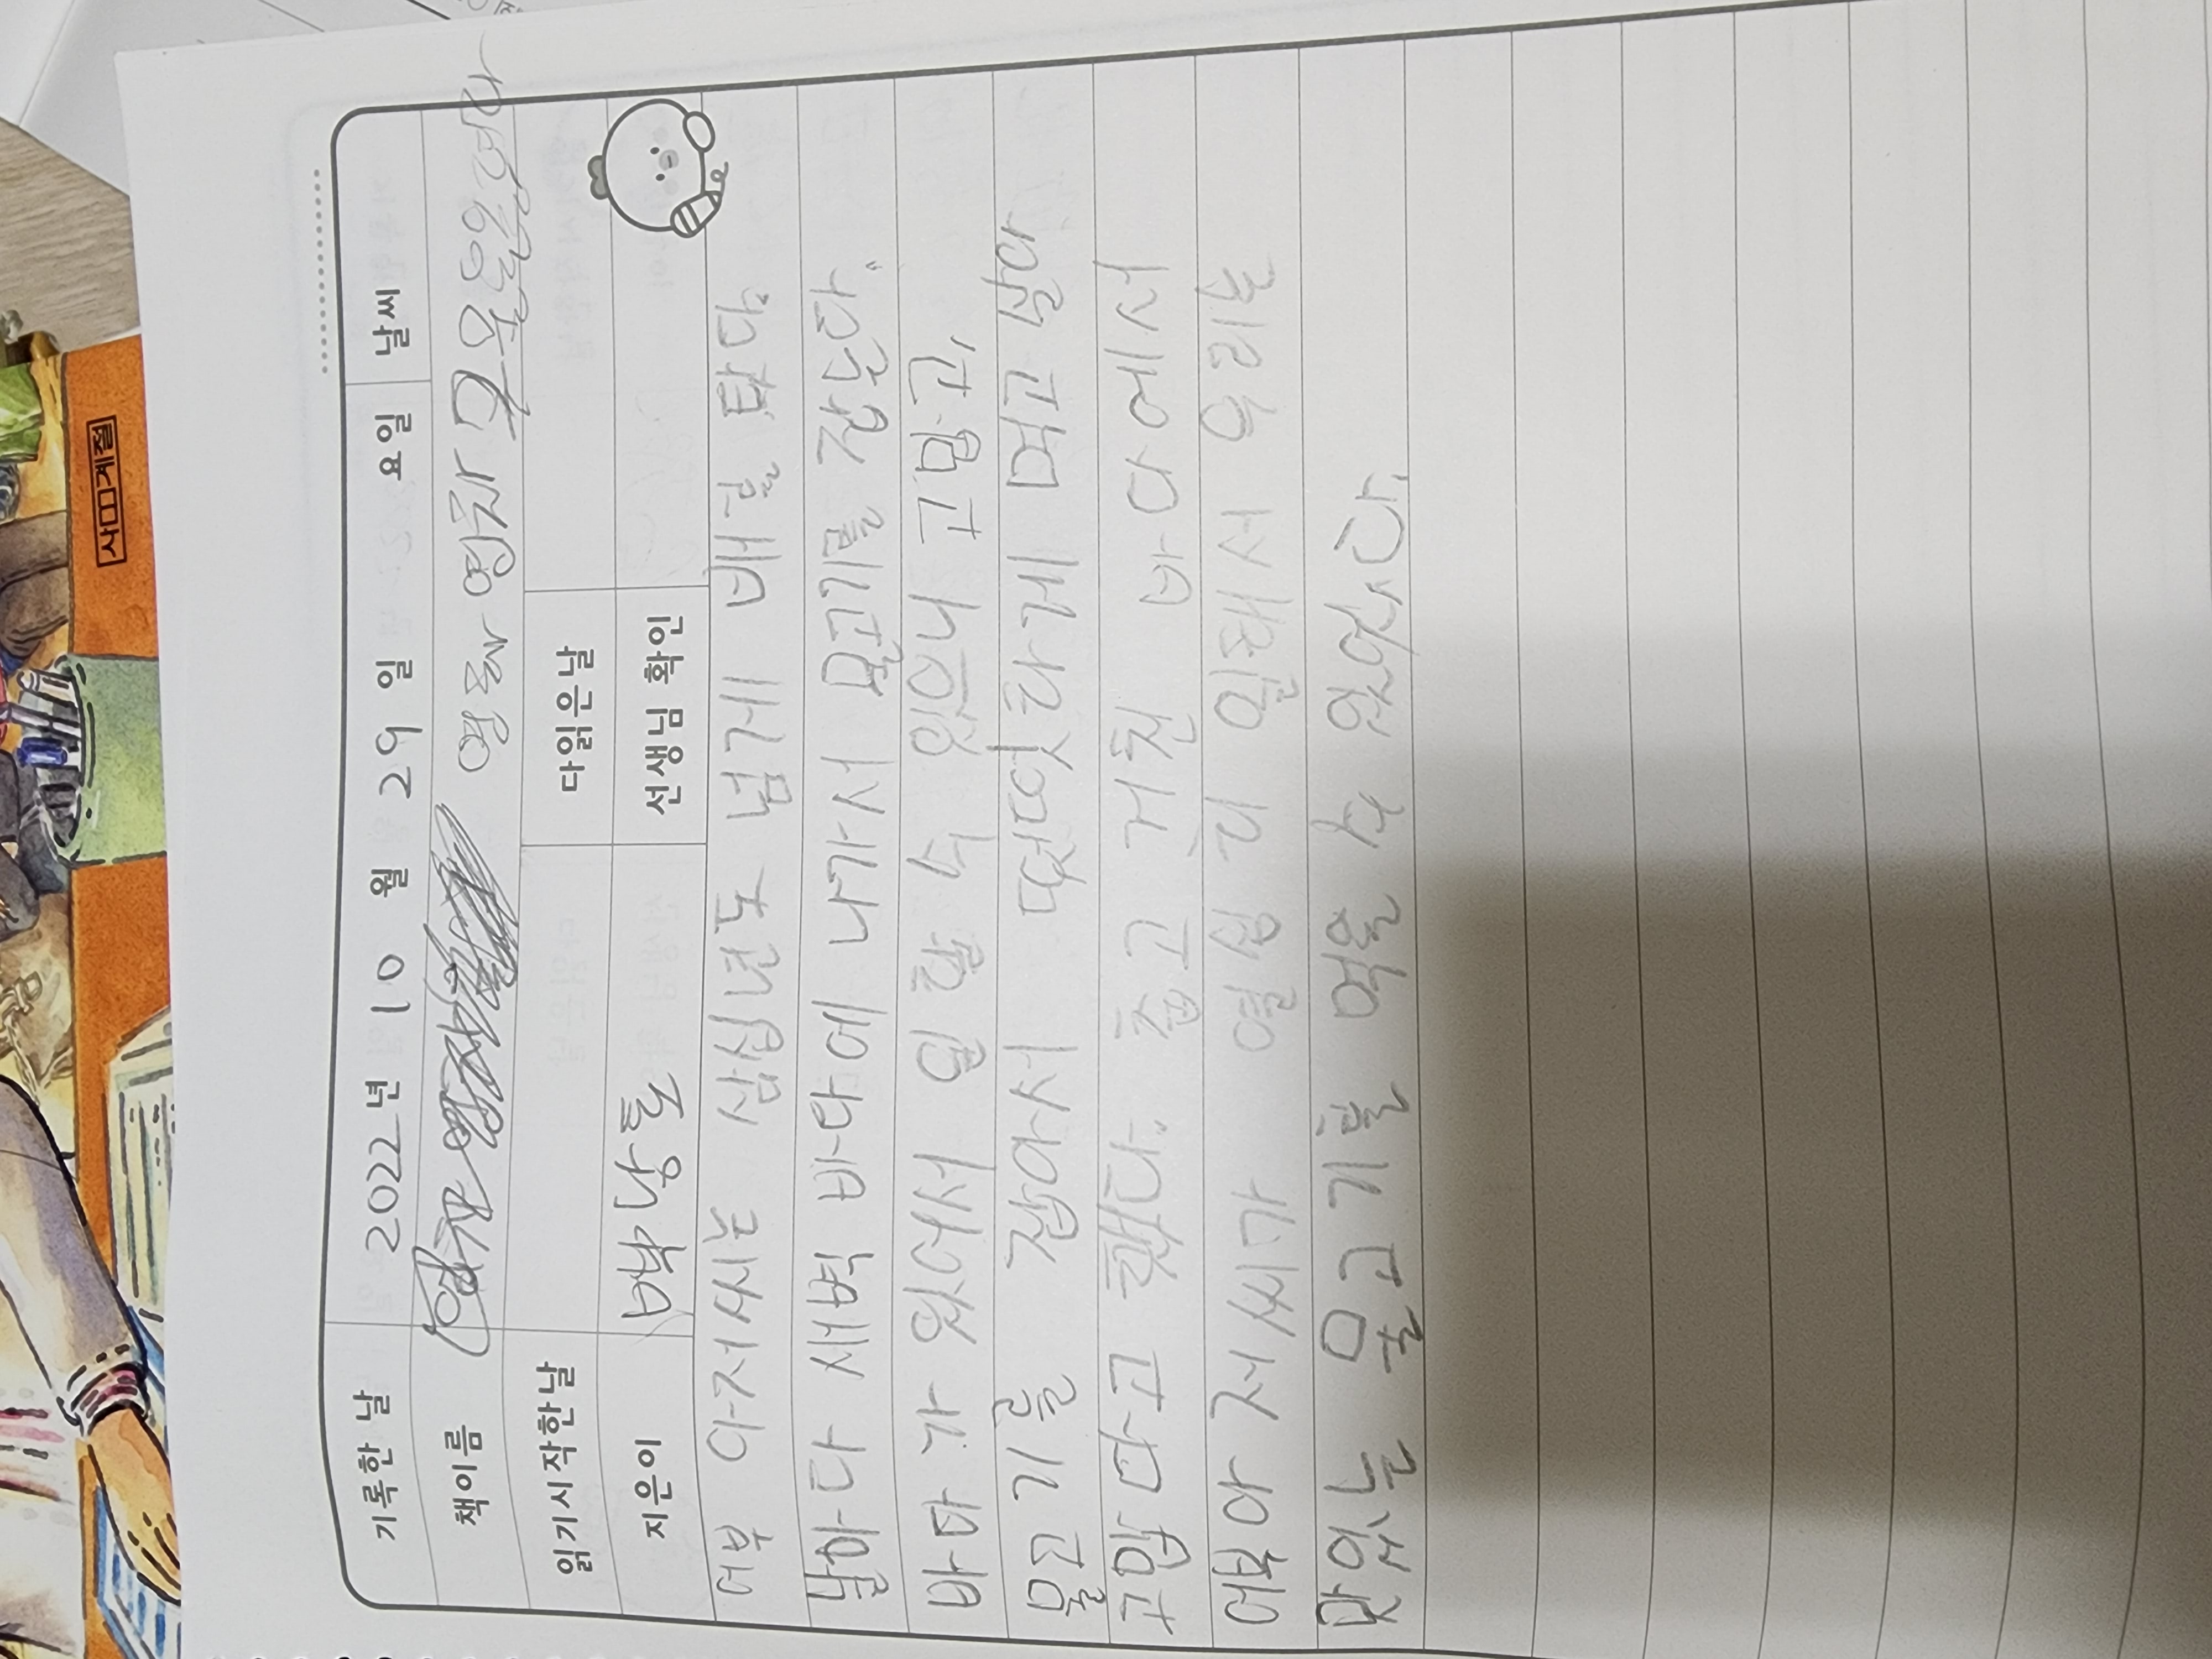 사계절
기록한 날 2022년 10 월 29 일 요일 날씨
책이름 영차 영차
읽기시작한날 다읽은날
지은이 백남호 선생님 확인
어부 아저씨는 삼십년도 넘게 배를 탔다.
날마다 새벽 바다에 나가서 물고기를 잡는다.
바다가 있어서 일할 수 있으니 고맙고,
물고기를 잡아서 떳떳하게 먹고 살아
고맙다고 했다. 춥고 거친 바다에서
어부아저씨가 열심히 일해서 우리는
맛있는 물고기를 먹을 수 있었다.